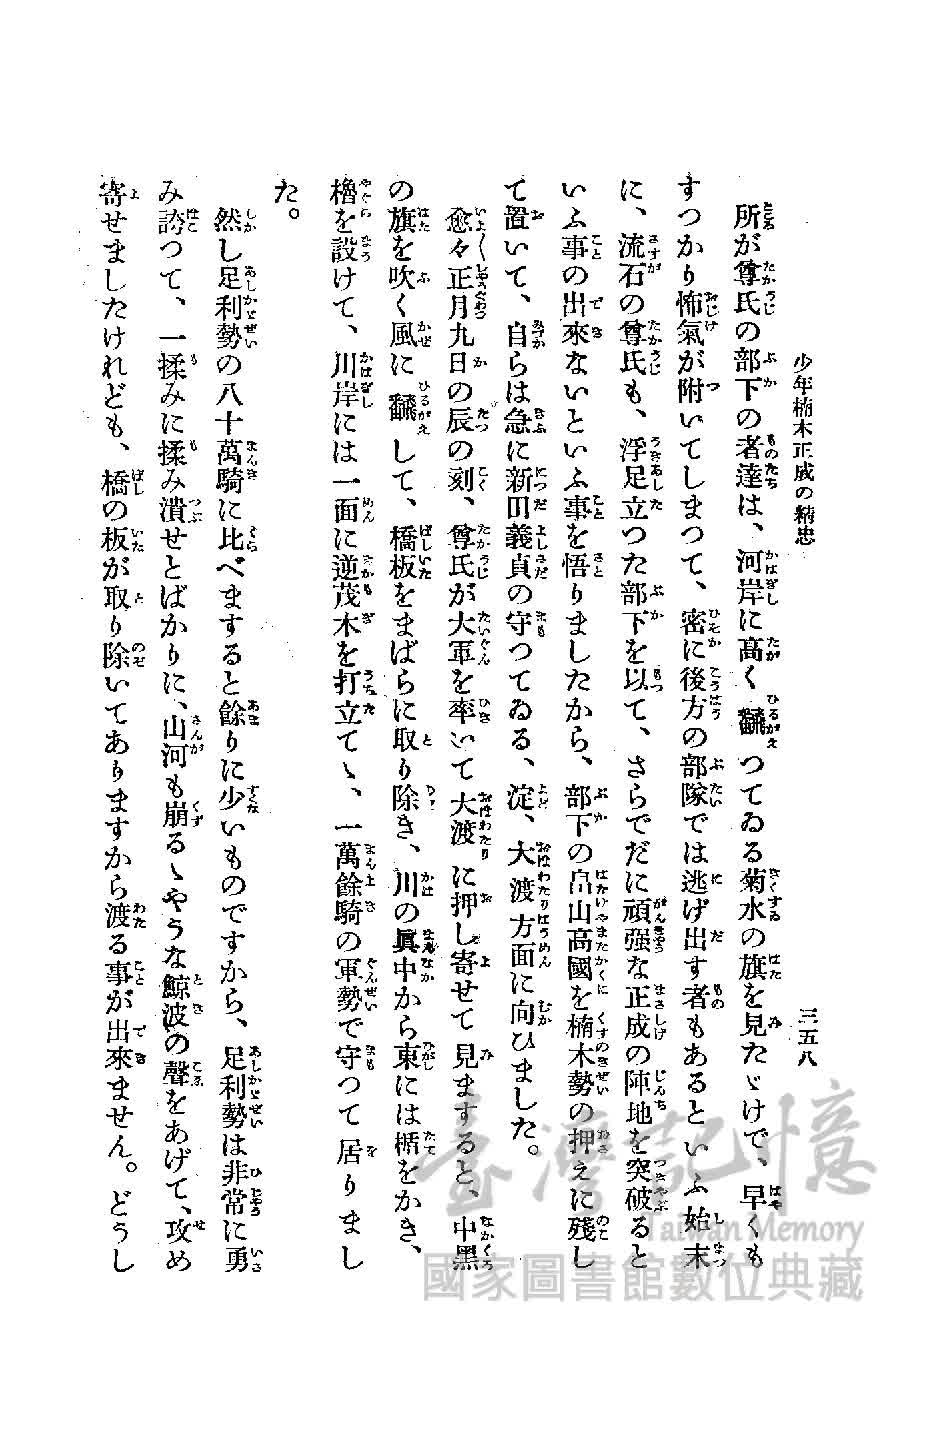 少年楠木正成の精忠
三五八
所が尊氏の部下の者達は、河岸に高く飜つてゐる菊水の旗を見たゞけで、早くも
すつかり怖氣が附いてしまつて、密に後方の部隊では逃げ出す者もあるといふ始末
に、流石の尊氏も、浮足立つた部下を以て、さらでだに頑强な正成の陣地を突破ると
いふ事の出來ないといふ事を悟りましたから、部下の畠山高國を楠木勢の押えに殘し
て置いて、自らは急に新田義貞の守つてゐる、淀、大渡方面に向ひました。
愈々正月九日の辰の刻、尊氏が大軍を率いて大渡に押し寄せて見ますると、中黑
の旗を吹く風に飜して、橋板をまばらに取り除き、川の眞中から東には楯をかき、
櫓を設けて、川岸には一面に逆茂木を打立てゝ、一萬餘騎の軍勢で守つて居りまし
た。
然し足利勢の八十萬騎に比べますると餘りに少いものですから、足利勢は非常に勇
み誇つて、一揉みに揉み潰せとばかりに、山河も崩るゝやうな鯨波の聲をあげて、攻め
寄せましたけれども、橋の板が取り除いてありますから渡る事が出來ません。どうし
臺灣記憶
Taiwan Memory
國家圖書館數位典藏